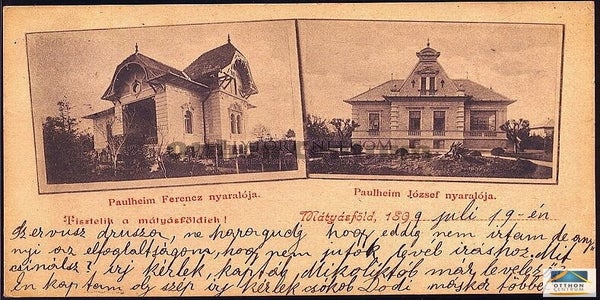 Paulheim Ferencz nyaralója.
Paulheim József nyaralója.
Tisztelik a mátyásföldiek!
Mátyásföld, 1899 juli 19-én
Szervusz druszor, ne haragudj hogy eddig nem irtam de any-
nyi az elfoglaltságom, hogy nem jutok levél iráshoz. Mit
csinálsz? irj kérlek, kaptál Mikoliktól már levelez
én kaptam oly szép irj kérlek csókol Dodi máskor többet
OTTHON
CENTRUM